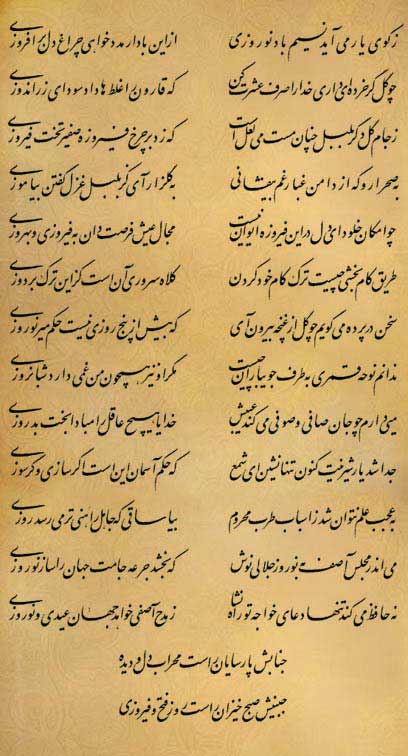 ز کوی یار می آید نسیم باد نوروزی از این باد ار مدد خواهی چراغ دل برافروزی
چو گل گر خرده‌ای داری خدا را صرف عشرت کن که قارون را غلط‌ها داد سودای زراندوزی
ز جام گل دگر بلبل چنان مست می لعل است که زد بر چرخ فیروزه صفیر تخت فیروزی
به صحرا رو که از دامن غبار غم بیفشانی به گلزار آی کز بلبل غزل گفتن بیاموزی
چو امکان خلود ای دل در این فیروزه ایوان نیست مجال عیش فرصت دان به فیروزی و بهروزی
طریق کام بخشی چیست ترک کام خود کردن کلاه سروری آن است کز این ترک بردوزی
سخن در پرده می گویم چو گل از غنچه بیرون آی که بیش از پنج روزی نیست حکم میر نوروزی
ندانم نوحه قمری به طرف جویباران چیست مگر او نیز همچون من غمی دارد شبانروزی
می‌ای دارم چو جان صافی و صوفی می کند عیبش خدایا هیچ عاقل را مبادا بخت بد روزی
جدا شد یار شیرینت کنون تنها نشین ای شمع که حکم آسمان این است اگر سازی و گر سوزی
به عجب علم نتوان شد ز اسباب طرب محروم بیا ساقی که جاهل را هنی تر می رسد روزی
می اندر مجلس آصف به نوروز جلالی نوش که بخشد جرعه جامت جهان را ساز نوروزی
نه حافظ می کند تنها دعای خواجه تورانشاه ز مدح آصفی خواهد جهان عیدی و نوروزی
جنابش پارسایان راست محراب دل و دیده
جبینش صبح خیزان راست روز فتح و فیروزی